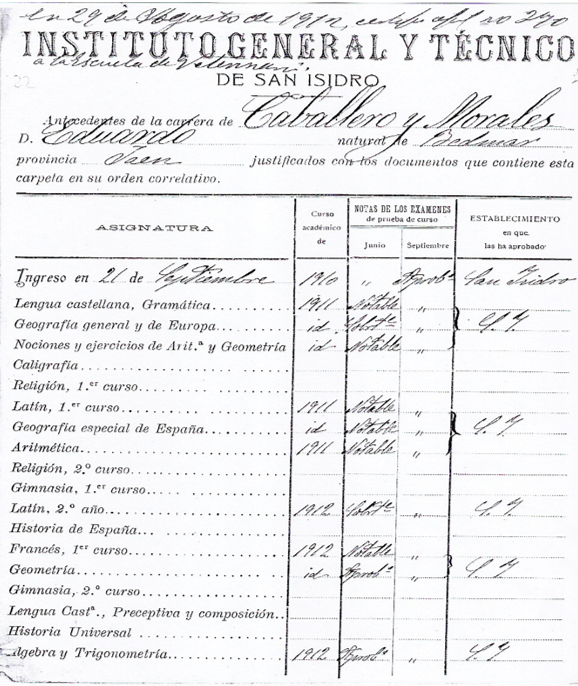 en 29 de Agosto de 1912, certif. ofl. nº 290
INSTITUTO GENERAL Y TÉCNICO
a la Escuela de Veterinaria
DE SAN ISIDRO
22
Antecedentes de la carrera de Caballero y Morales
D. Eduardo natural de Bedmar
provincia Jaen justificados con los documentos que contiene esta
carpeta en su orden correlativo.
ASIGNATURA Curso académico de NOTAS DE LOS EXÁMENES de prueba de curso Junio Septiembre ESTABLECIMIENTO en que las ha aprobado
Ingreso en 21 de Septiembre 1910 „ Aprobº San Isidro
Lengua castellana, Gramática 1911 Notable „
Geografía general y de Europa id Sobrte „ S. I.
Nociones y ejercicios de Arit.ª y Geometría id Notable „
Caligrafía
Religión, 1.er curso
Latín, 1.er curso 1911 Notable „
Geografía especial de España id Notable „ S. I.
Aritmética 1911 Notable „
Religión, 2.º curso
Gimnasia, 1.er curso
Latín, 2.º año 1912 Sobrte „ S. I.
Historia de España
Francés, 1er curso 1912 Notable „
Geometría id Aprobº „ S. I.
Gimnasia, 2.º curso
Lengua Castª., Preceptiva y composición
Historia Universal
Algebra y Trigonometría 1912 Aprobº „ S. I.